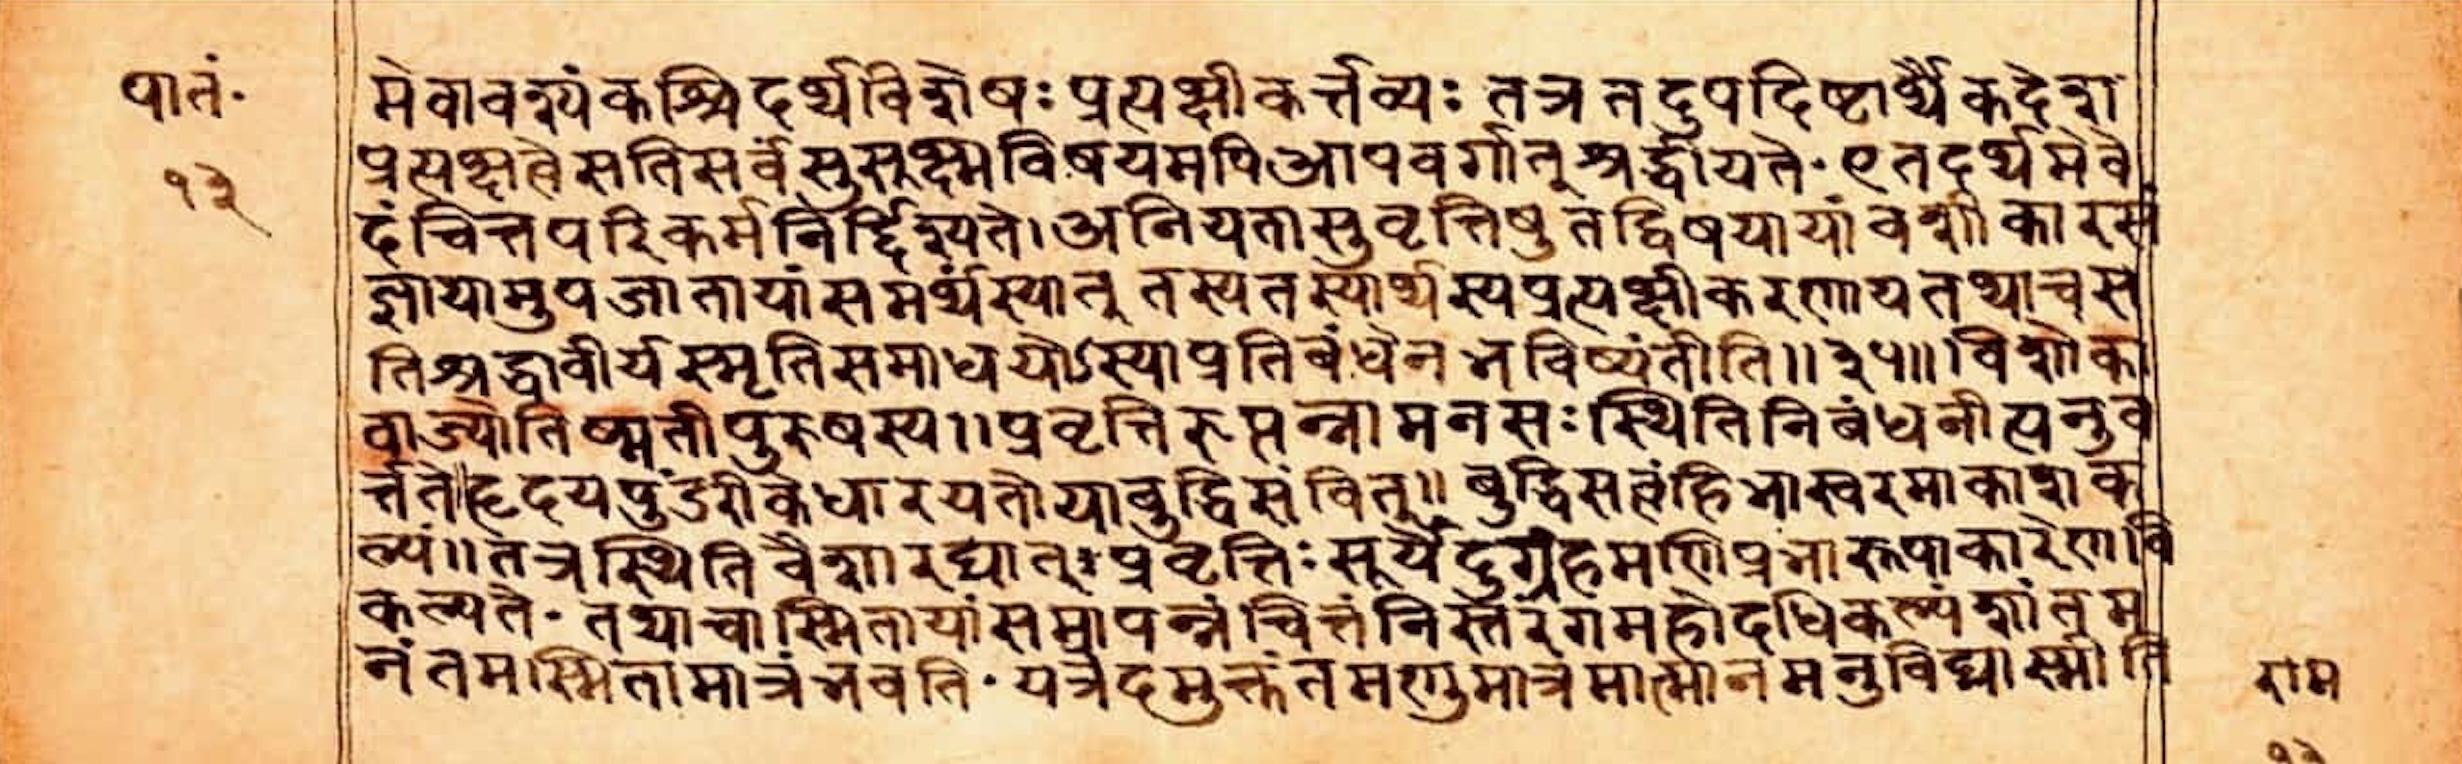 पातं॰
१३
मेवावश्यंकश्चिदर्थविशेषः प्रत्यक्षीकर्त्तव्यः तत्र तदुपदिष्टार्थैकदेश
प्रत्यक्षत्वे सतिसर्वं सुसूक्ष्मविषयमपिआपवर्गात् श्रद्धीयते॰ एतदर्थमेवे
दं चित्तपरिकर्म निर्द्दिश्यते। अनियतासु वृत्तिषु तद्विषयायां वशीकारसं
ज्ञायामुपजातायां समर्थंस्यात् तस्यतस्यार्थस्यप्रत्यक्षीकरणाय तथाच स
तिश्रद्धावीर्यस्मृतिसमाधयोऽस्याप्रतिबंधेन भविष्यंतीति॥३५॥ विशोका
वाज्योतिष्मती पुरुषस्य॥ प्रवृत्तिरुत्पन्नामनसः स्थितिनिबंधनीत्यनुव
र्त्तते॥हृदयपुंडरीकेधारयतोयाबुद्धिसंवित्॥ बुद्धिसत्वंहि भास्वरमाकाशक
ल्पं॥तत्रस्थितिवैशारद्यात् प्रवृत्तिः सूर्येंदुग्रहमणिप्रभारूपाकारेणवि
कल्पते॰ तथाचास्मितायां समापन्नं चित्तं निस्तरंगमहोदधिकल्पं शांतम
नंतमस्मितामात्रं भवति॰ यत्रेदमुक्तं तमणुमात्रमात्मानमनुविद्यास्मीति
राम
१३